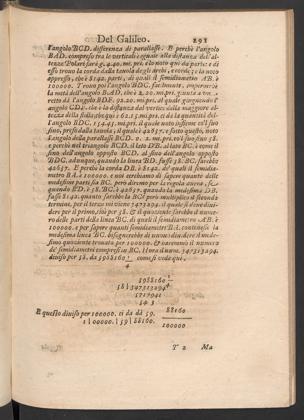 Del Galileo. 291
l'angolo BCD. differenza di parallasse. E perchè l'angolo
BAD. compreso tra le verticali è eguale alla distanza dell'al-
tezze Polari sarà g. 4. 40. mi. pri. e lo noto quì da parte: e di
esso trovo la corda dalla tavola degli archi, e corde; e la noto
appresso, che è 8142. parti, di quali il semidiametro AB. è
100000. Trovo poi l'angolo BDC. facilmente, imperocchè
la metà dell'angolo BAD. che è 2. 20. mi. pri. giunta a un
retto dà l'angolo BDF. 92. 20. mi. pri. al quale giugnendo l'
angolo CD
altezza della stella, che quì è 62. 15. mi. pri. ci dà la quantità del-
l'angolo BDC, 154. 45. mi. pri. il quale noto insieme col suo
sino, preso dalla tavola, il quale è 42657. e sotto questo, noto
l'angolo della parallasse BCD. 0. 2. mi. pri. col suo sino 58.
e perchè nel triangolo BCD. il lato DB. al lato BC. è come il
sino dell'angolo opposto BCD. al sino dell'angolo opposto
BDC. adunque, quando la linea BD. fusse 58. BC. sarebbe
42657. E perchè la corda DB. è 8142. di quali il semidia-
metro AB. è 100000. e noi cerchiamo di sapere quante delle
medesime parti sia BC. però diremo per la regola aurea, se,
quando BD. è 58. BC. è 42657. quando la medesima DB.
fusse 8142. quanto sarebbe la BC? però multiplico il secondo
termine per il terzo mi viene 347313294. il quale si deve divi-
dere per il primo, ciò è per 58. & il quoziente sarebbe il nume-
ro delle parti della linea BC. di quali il semidiametro AB. è
100000. e per sapere quanti semidiametri BA. contenga la
medesima linea BC. bisognerebbe di nuovo dividere il mede-
simo quoziente trovato per 100000. & avremmo il numero
de' semidiametri compresi in BC. Ora il num. 347313294.
diviso per 58. dà 5988160 come si vede quì.
5988160
58 | 347313294
5717941
54 3
E questo diviso per 100000. ci dà 59. 88160
1 | 00000. | 59 | 88160. 100000
T 2 Ma